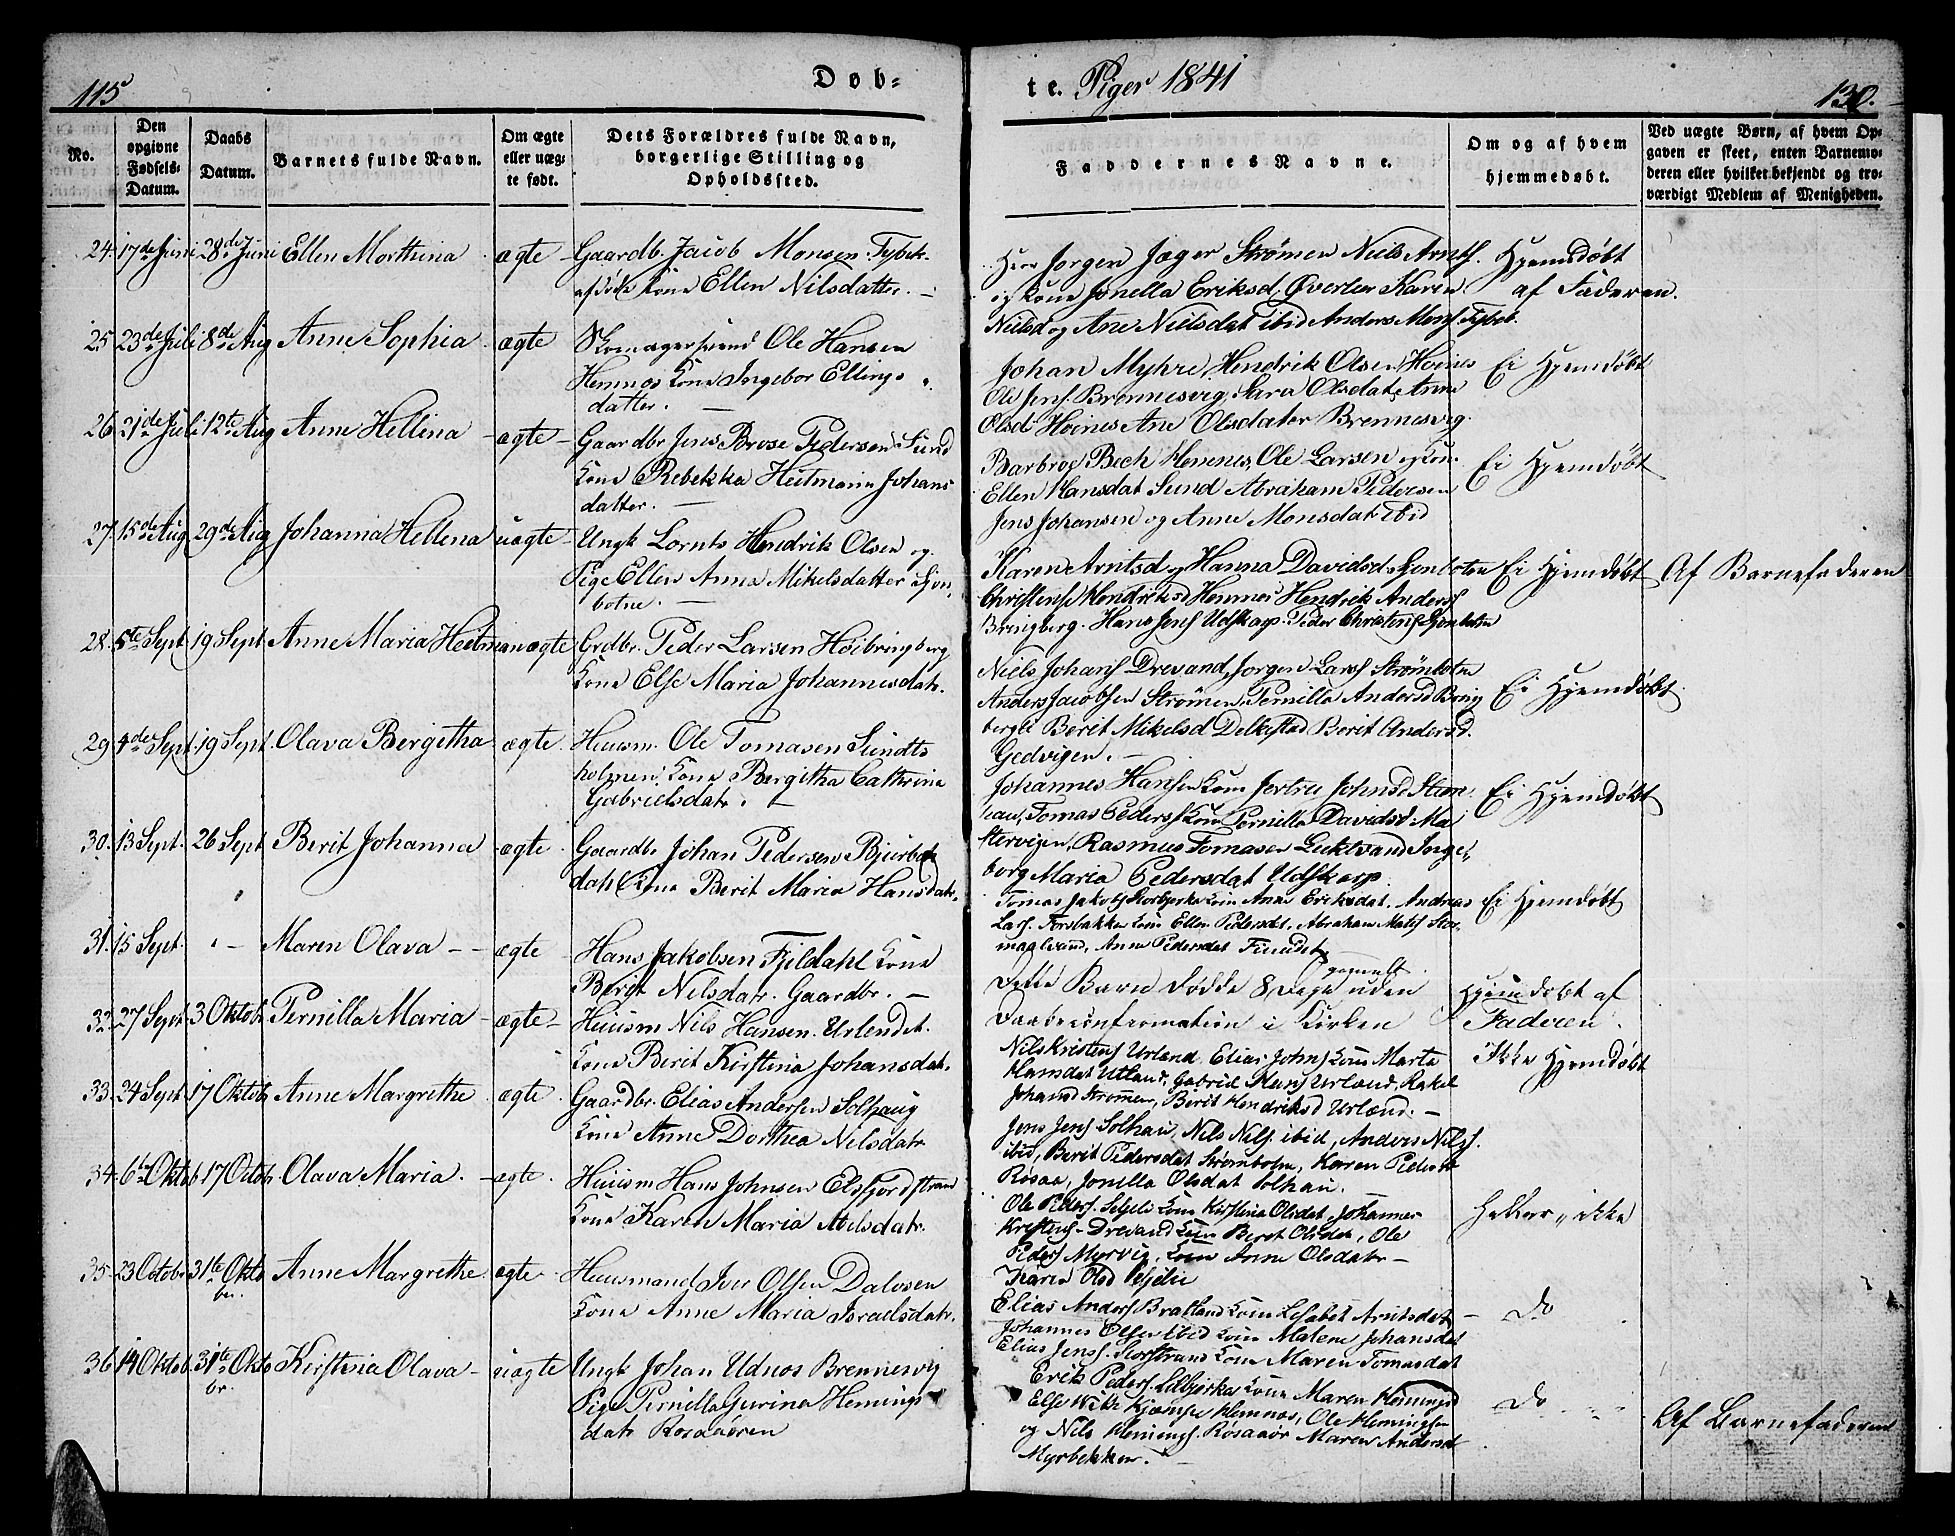 115
Døb-
te. Piger 1841
130.
No.
Den opgivne Fødsels-Datum.
Daabs Datum.
Barnets fulde Navn.
Om ægte eller uæg-te født.
Dets Forældres fulde Navn, borgerlige Stilling og Opholdssted.
Faddernes Navne.
Om og af hvem hjemmedøbt.
Ved uægte Børn, af hvem Op-gaven er skeet, enten Barnemo-deren eller hvilket bekjendt og tro-værdigt Medlem af Menigheden.
24. 17de Juni 28de Juni Ellen Morthina ægte Gaardb. Jacob Monsen Fybek
Kone Ellen Nilsdatter.
Jorgen Jæger Strømen Niels Arnts.
og Kone Jonella Eriksd. Øverlen Karen
Nielsd og Ane Nielsdat ibid Anders Mons. Fybek.
Hjemdøbt
af Faderen.
25 23de Juli 8de Aug Anne Sophia ægte Skomagersvend Ole Hansen
Hemnes Kone Ingebor Ellings
datter.
Johan Myhre, Hendrik Olsen Hoines
Ole Jens. Brennesvig, Sara Olsdat, Anne
Olsd Hoines Ane Olsdater Brennesvig.
Ei Hjemdøbt
26 21de Juli 12te Aug Anne Hellina ægte Gaardbr Jens Brose Pedersen Sund
Kone Rebekka Heitmann Johans
datter.
Barbroe Bech Hemnes, Ole Larsen og Kon.
Ellen Hansdat Sund Abraham Pedersen
Jens Johansen og Anne Monsdat ibid
Ei Hjemdøbt
27. 15de Aug 29de Aug Johanna Hellena uægte Ungk Lornts Hendrik Olsen og
Pige Ellen Anna Mikelsdatter Sjon
botne.
Karen Arntsd og Hanna Davidsd Sjonboten
Christense Hendriksd Hemnes Hendrik Anders
Bringberg. Hans Jens Udskarp. Peder Christens Sjonboten
Ei Hjemdøbt
Af Barnefaderen
28. 5te Sept 19 Sept Anne Maria Heitman ægte Grdbr. Peder Larsen Høibringberg
Kone Else Maria Johannesdatr.
Niels Johans Drevand, Jorgen Lars Strømboten
Anders Jacobsen Strømen, Pernilla Andersd Bring
berget Berit Mikelsd Delkestad Berit Andersd.
Gedvigen.
Ei Hjemdøbt.
29 4de Sept. 19 Sept. Olava Bergitha ægte Huusm. Ole Tomasen Sundts
holmen Kone Bergitha Cathrina
Gabrielsdatr.
Johannes Hansen Kone Jertru Johnsd
Tomas Peders Kone Pernilla Davidsd Ma
stervigen, Rasmus Tomasen Luktvand Inge
borg Maria Pedersdat Udskarp.
Ei Hjemdøbt
30. 13 Sept. 26 Sept Berit Johanna ægte Gaardbr Johan Pedersen Bjurbæk
dahl Kone Berit Maria Hansdatr.
Tomas Jakobs Storbjerka Kone Anne Eriksdat. Andreas
Lars. Forsbakken Kone Ellen Pedersdt. Abraham Mats Stor
maalvand, Anne Pedersdat
Ei Hjemdøbt
31. 15 Sept. " Maren Olava ægte Hans Jakobsen Fjeldahl Kone
Berit Nilsdatr. Gaardbr.
Dette Barn Dødde 8 Dage gamelt uden
Daabsconfirmation i Kirken
Hjemdøbt af
Faderen.
32. 27 Sept 3 Oktob. Pernilla Maria ægte Huusm Nils Hansen. Urlendet.
Kone Berit Kirstina Johansdatr.
Nils Kristens Urland. Elias Johns Kone Marta
Hansdat Utland, Gabriel Hans Urland, Rakel
Johansd Stromen, Berit Hendriksd Urland.
Ikke Hjemdøbt
33. 24 Sept 17 Oktob. Anne Margrethe ægte Gaardbr. Elias Andersen Solhaug
Kone Anne Dorthea Nilsdatr
Jens Jens Solhau, Nils Nils. ibid, Anders Nils.
ibid, Berit Pedersdat Strømbolm, Karen Pedersdt
Røsaa, Jonella Olsdat Solhau.
34. 6te Oktob 17 Octob. Olava Maria ægte. Huusm Hans Johnsen Elsfjordstrand
Kone Karen Maria Abelsdatr.
Ole Peders. Seljeli Kone Kirstina Olsdat, Johannes
Kristens. Drevand Kone Berit Olsdat, Ole
Peders Myrvig, Kone Anne Olsdatr
Karen Olsd Seljelie
Heller ikke
35 23 Octobr 31te Okto
br. Anne Margrethe ægte Huusmand Iver Olsen Dalosen
Kone Anne Maria Israelsdatr.
Elias Anders Bratland Kone Lisabet Arntsdat
Johannes Olsen ibid Kone Malene Johansdat
Elias Jens. Storstrand Kone Maren Tomasdat
Do
36 14 Oktob. 31te Okto
br. Kirstina Olava uægte Ungk Johan Udnos Brennesvig
Pige Pernilla Gurina Hemings
datr Røsaaøren
Erik Peders. Lilbjerka Kone Maren Hemingsd
Else Hemnes, Ole Hemingsen
og Nils Hemings. Røsaaør Maren Andersd
Myrbekken.
Do
Af Barnefaderen